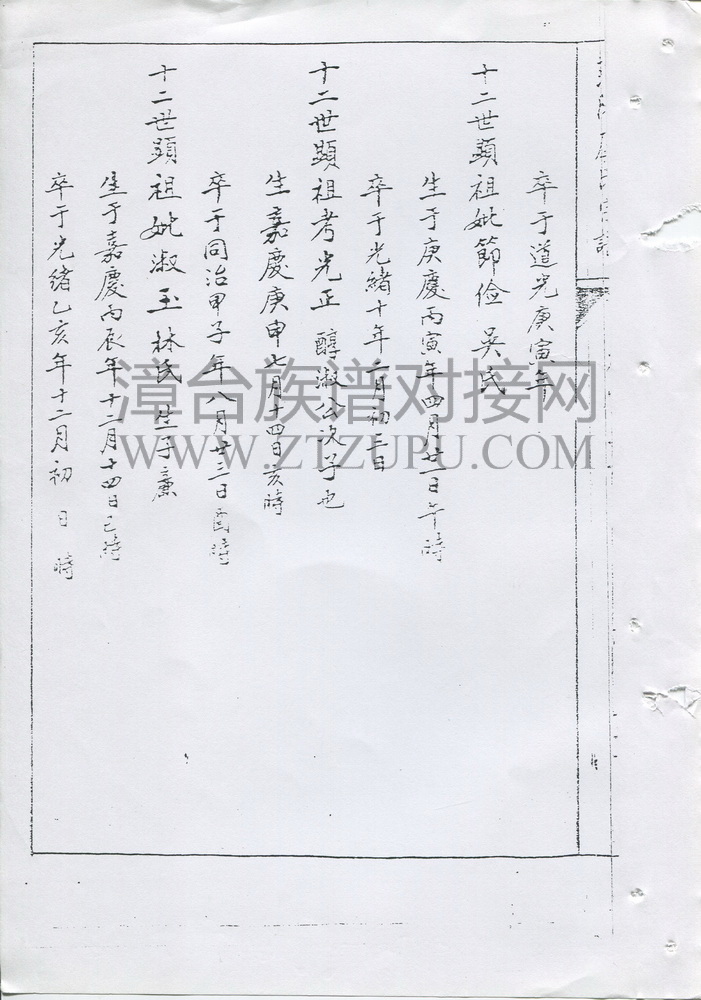 卒于道光庚寅年
十二世顯祖妣節儉吳氏
生于庚慶丙寅年四月廿一日午時
卒于光緒十年二月初三日
十二世顯祖考光正 醇淑公次子也
生嘉慶庚申七月十四日亥時
卒于同治甲子年八月廿三日酉時
十二世顯祖妣淑玉林氏生子廉
生于嘉慶丙辰年十二月十四日巳時
卒于光緒乙亥年十二月初 日 時
漳台族谱对接网
WWW.ZTZUPU.COM